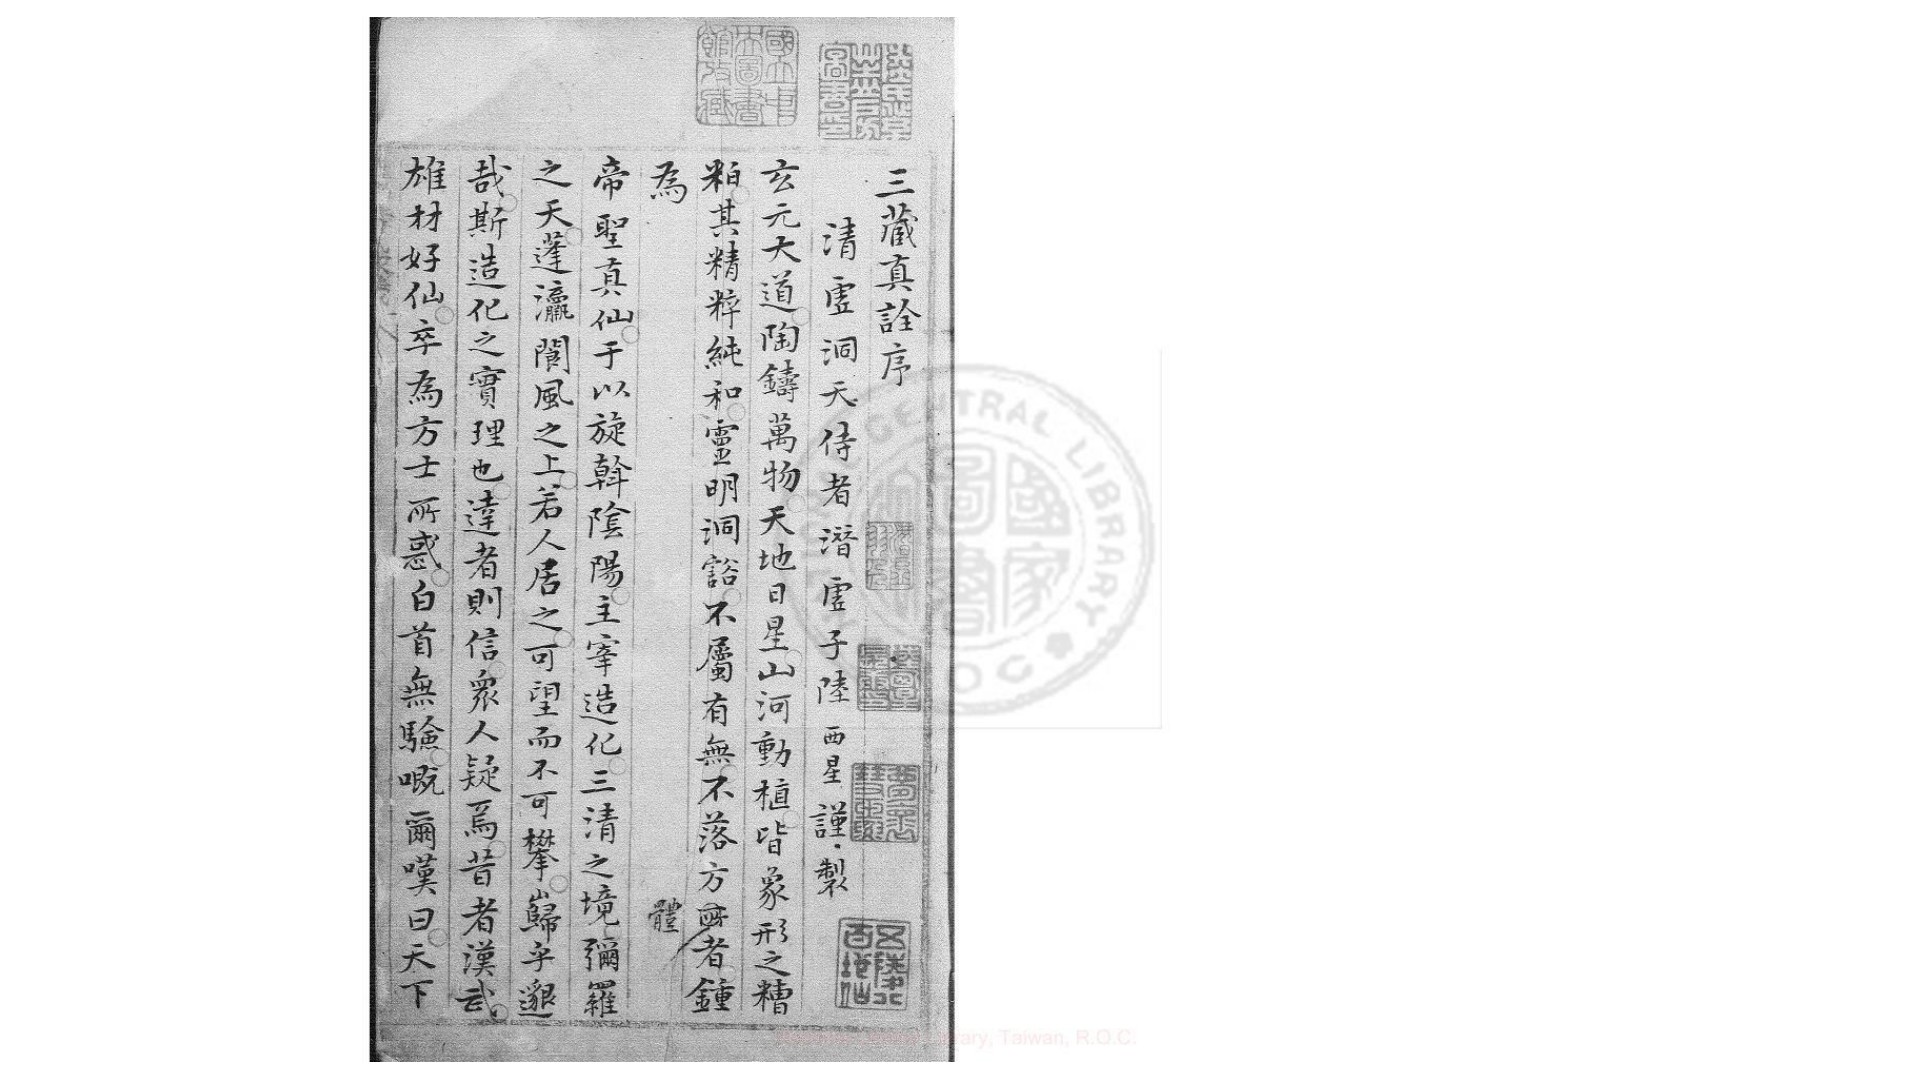 三藏真詮序
清虛洞天侍者潛虛子陸西星謹製
玄元大道陶鑄萬物天地日星山河動植皆象形之糟
粕其精粹純和靈明洞豁不屬有無不落方體者鍾
為
帝聖真仙于以旋斡陰陽主宰造化三清之境彌羅
之天蓬瀛閬風之上若人居之可望而不可攀巋乎邈
哉斯造化之實理也達者則信衆人疑焉昔者漢武
雄材好仙卒為方士所惑白首無驗嘅爾嘆曰天下
國立中央圖書館收藏
NATIONAL CENTRAL LIBRARY R.O.C.
國家圖書館
National Central Library, Taiwan, R.O.C.